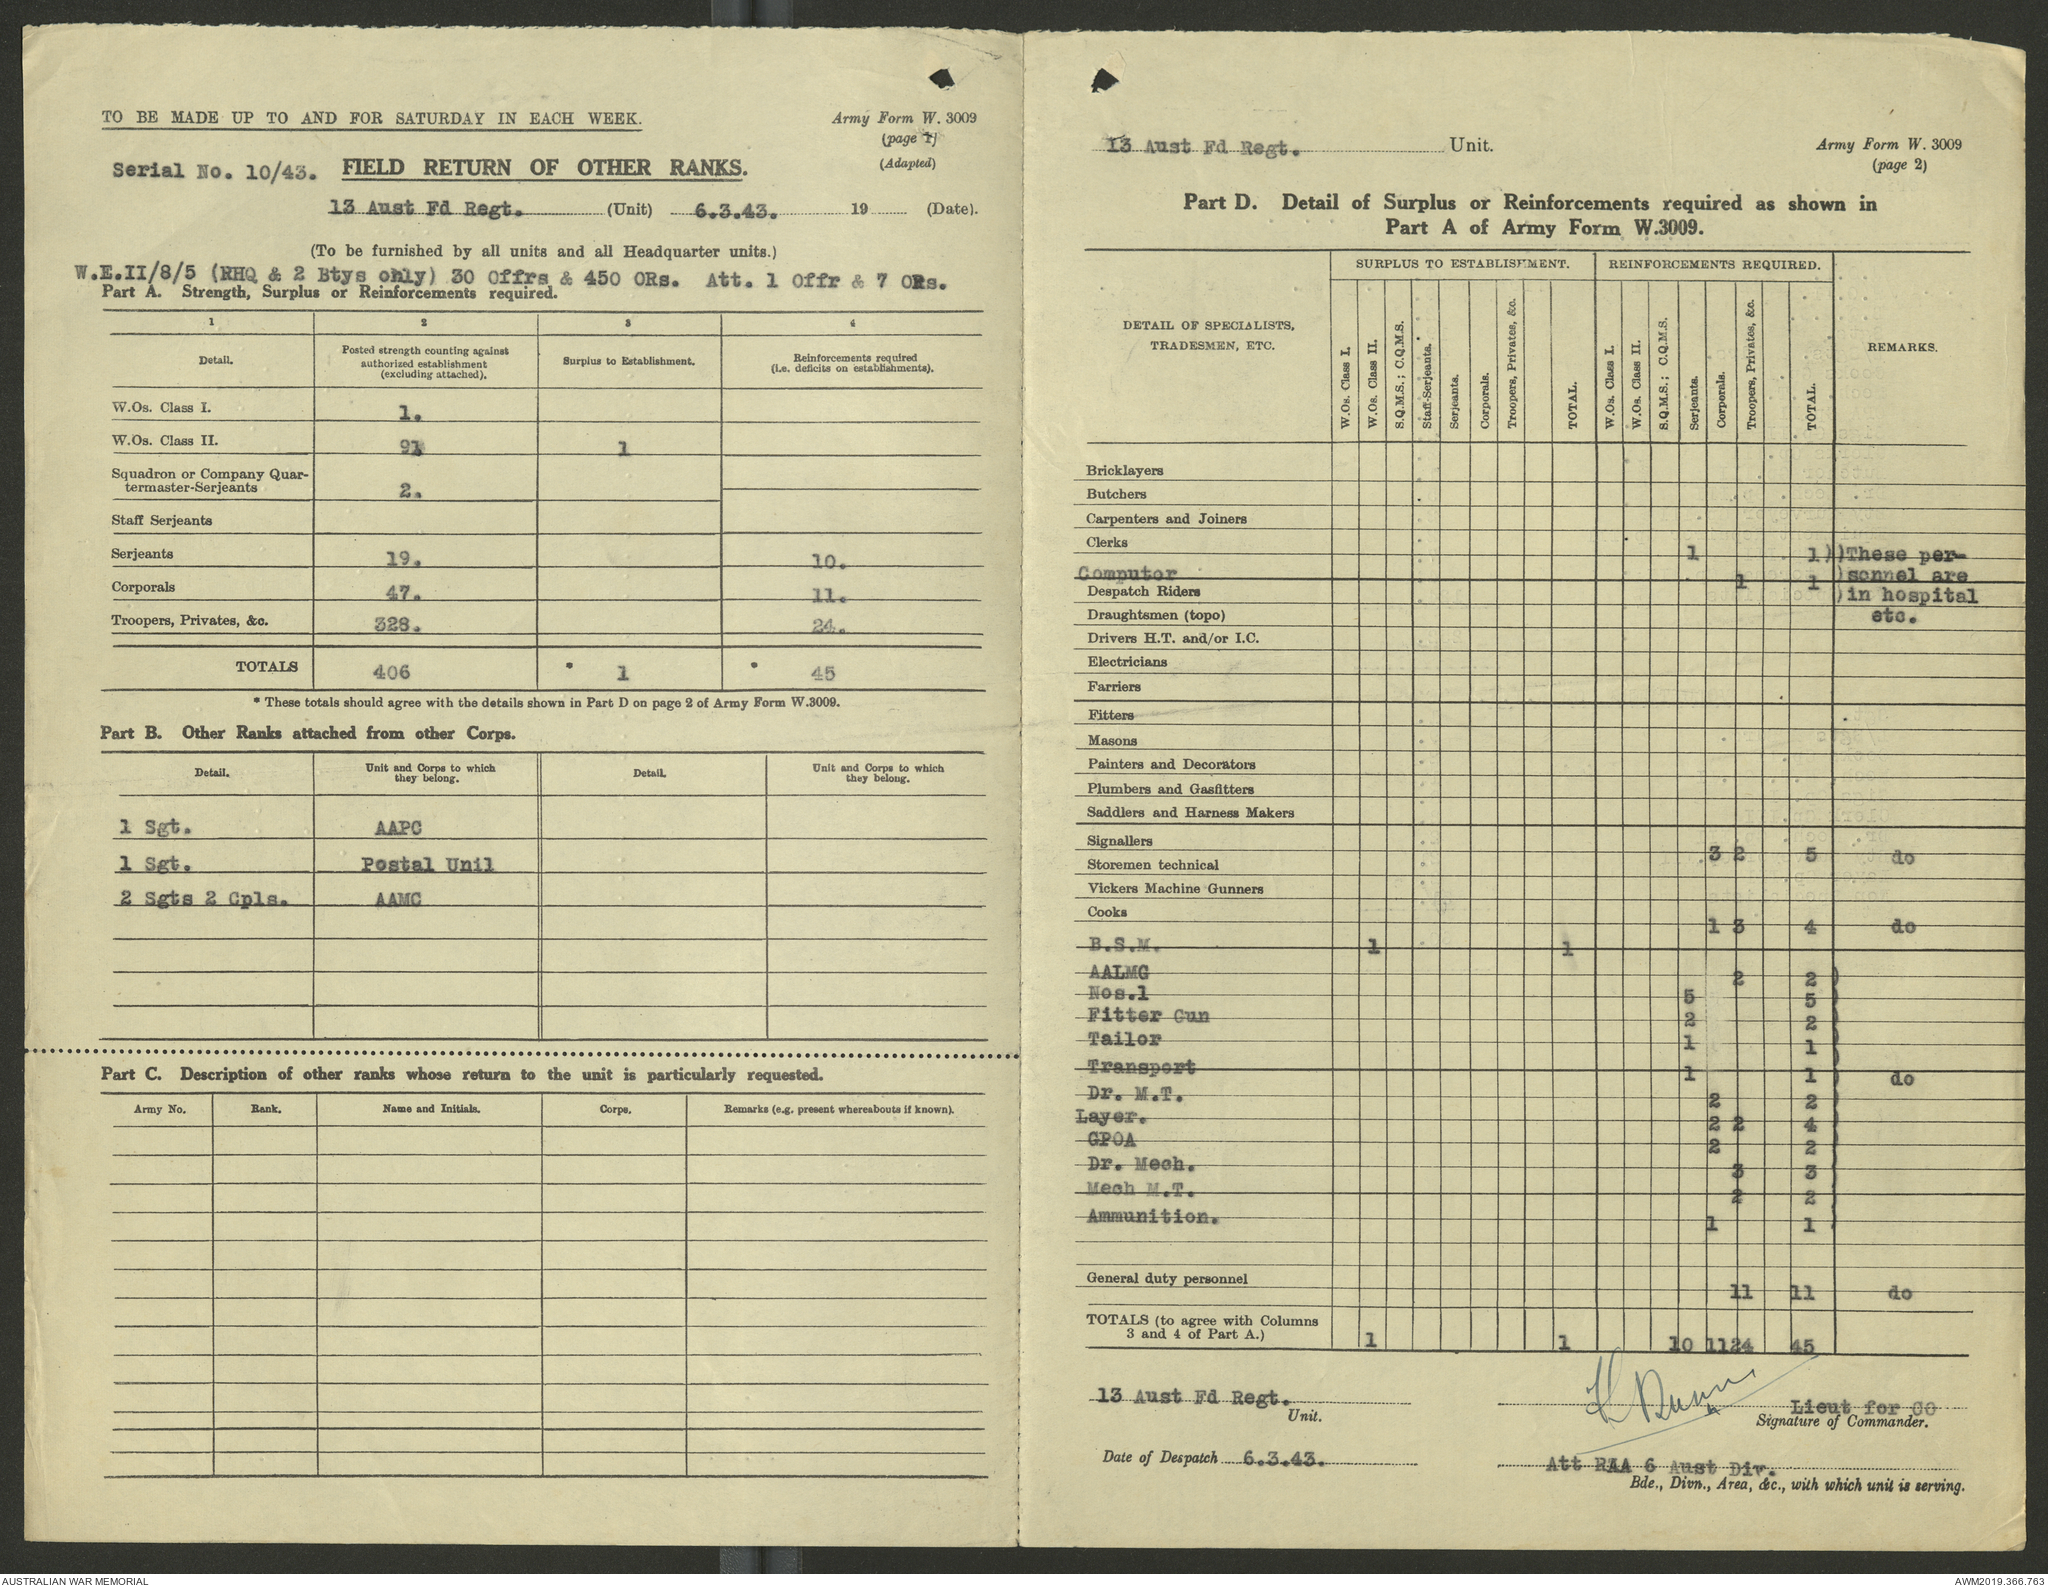 TO BE MADE UP TO AND FOR SATURDAY IN EACH WEEK.
Army Form W. 3009
(page 1)
(Adapted)
Serial No. 10/43. FIELD RETURN OF OTHER RANKS.
13 Aust Fd Regt. (Unit) 6.3.43. 19 (Date).
(To be furnished by all units and all Headquarter units.)
W.E.II/8/5 (RHQ & 2 Btys only) 30 Offrs & 450 ORs. Att. 1 Offr & 7 ORs.
Part A. Strength, Surplus or Reinforcements required.
1 2 3 4
Detail. Posted strength counting against authorized establishment (excluding attached). Surplus to Establishment. Reinforcements required (i.e. deficits on establishments).
W.Os. Class I. 1.
W.Os. Class II. 9 1
Squadron or Company Quar-
termaster-Serjeants 2.
Staff Serjeants
Serjeants 19. 10.
Corporals 47. 11.
Troopers, Privates, &c. 328. 24.
TOTALS 406 * 1 * 45
* These totals should agree with the details shown in Part D on page 2 of Army Form W.3009.
Part B. Other Ranks attached from other Corps.
Detail. Unit and Corps to which they belong. Detail. Unit and Corps to which they belong.
1 Sgt. AAPC
1 Sgt. Postal Unil
2 Sgts 2 Cpls. AAMC
Part C. Description of other ranks whose return to the unit is particularly requested.
Army No. Rank. Name and Initials. Corps. Remarks (e.g. present whereabouts if known).
13 Aust Fd Regt. Unit.
Army Form W. 3009
(page 2)
Part D. Detail of Surplus or Reinforcements required as shown in
Part A of Army Form W.3009.
SURPLUS TO ESTABLISHMENT. REINFORCEMENTS REQUIRED.
DETAIL OF SPECIALISTS,
TRADESMEN, ETC.
W.Os. Class I.
W.Os. Class II.
S.Q.M.S.; C.Q.M.S.
Staff-Serjeants.
Serjeants.
Corporals.
Troopers, Privates, &c.
TOTAL.
W.Os. Class I.
W.Os. Class II.
S.Q.M.S.; C.Q.M.S.
Serjeants.
Corporals.
Troopers, Privates, &c.
TOTAL.
REMARKS.
Bricklayers
Butchers
Carpenters and Joiners
Clerks 1 1 ) )These per-
Computor 1 1 )sonnel are
Despatch Riders )in hospital
Draughtsmen (topo) etc.
Drivers H.T. and/or I.C.
Electricians
Farriers
Fitters
Masons
Painters and Decorators
Plumbers and Gasfitters
Saddlers and Harness Makers
Signallers 3 2 5 do
Storemen technical
Vickers Machine Gunners
Cooks 1 3 4 do
B.S.M. 1 1
AALMG 2 2 )
Nos.1 5 5 )
Fitter Gun 2 2 )
Tailor 1 1 )
Transport 1 1 ) do
Dr. M.T. 2 2 )
Layer. 2 2 4 )
GPOA 2 2 )
Dr. Mech. 3 3 )
Mech M.T. 2 2 )
Ammunition. 1 1 )
General duty personnel 11 11 do
TOTALS (to agree with Columns
3 and 4 of Part A.) 1 1 10 11 24 45
13 Aust Fd Regt.
Unit.
Lieut for CO
Signature of Commander.
Date of Despatch 6.3.43.
Att RAA 6 Aust Div.
Bde., Divn., Area, &c., with which unit is serving.
AUSTRALIAN WAR MEMORIAL
AWM2019.366.763